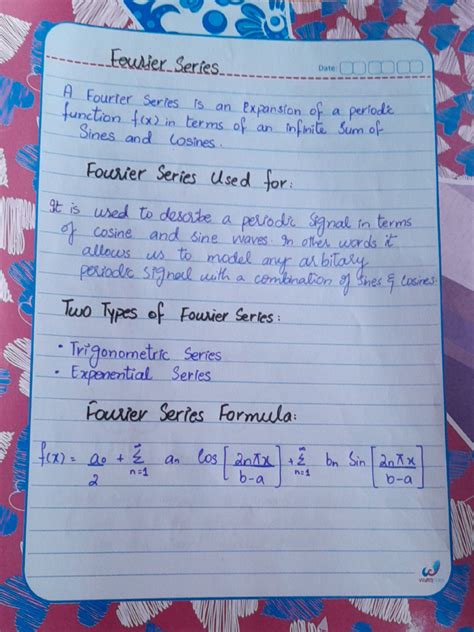 Fourier Series
Date:
A Fourier Series is an expansion of a periodic
function f(x) in terms of an infinite sum of
Sines and Cosines.
Fourier Series Used for:
It is used to describe a periodic signal in terms
of cosine and sine waves. In other words it
allows us to model any arbitary
periodic signal with a combination of sines & cosines.
Two Types of Fourier Series:
• Trigonometric Series
• Exponential Series
Fourier Series Formula:
f(x) = a0/2 + ∞Σn=1 an Cos [2nπx/b-a] + ∞Σn=1 bn Sin [2nπx/b-a]